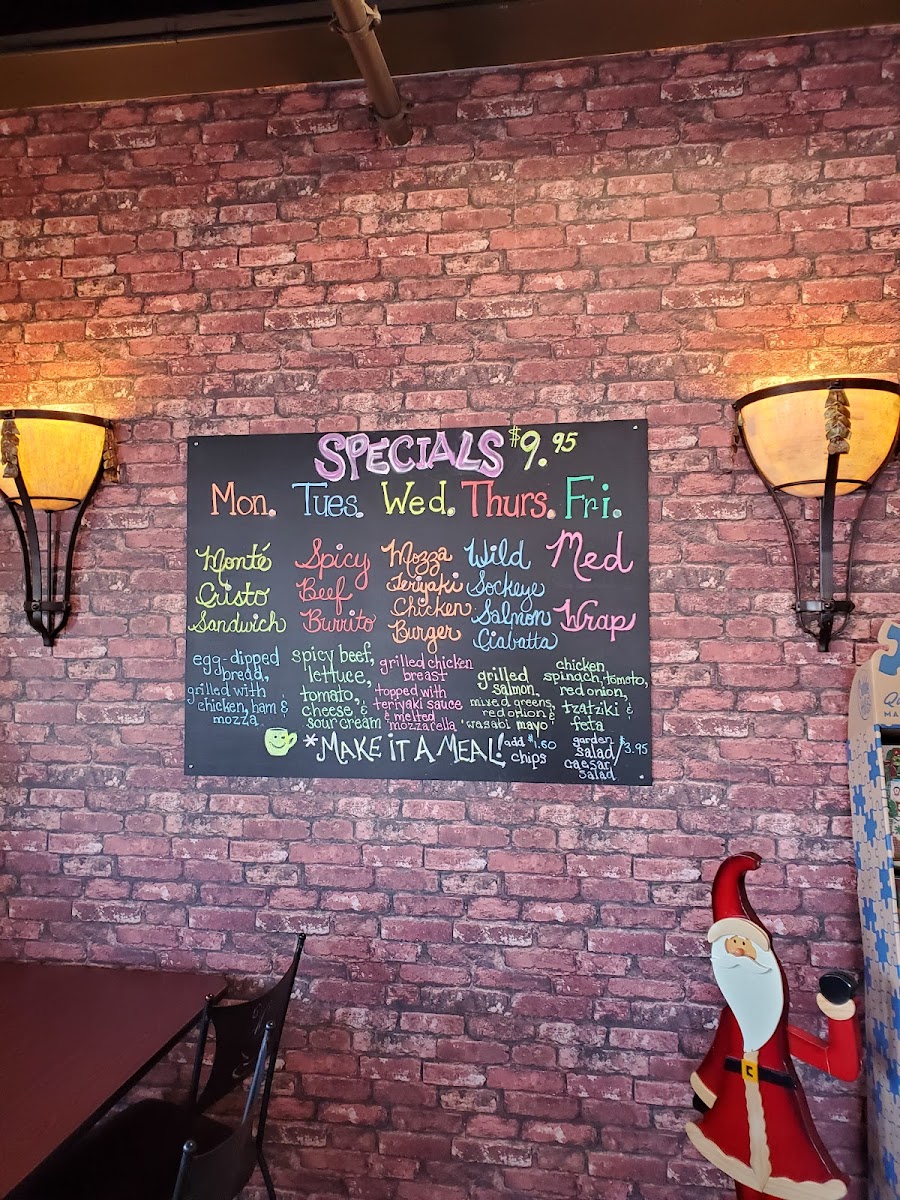 SPECIALS $9.95
Mon. Tues. Wed. Thurs. Fri.
Monté
Cristo
Sandwich
egg-dipped
bread,
grilled with
chicken, ham &
mozza.
Spicy
Beef
Burrito
spicy beef,
lettuce,
tomato,
cheese, &
sour cream
Mozza
Teriyaki
Chicken
Burger
grilled chicken
breast
topped with
teriyaki sauce
& melted
mozzarella
Wild
Sockeye
Salmon
Ciabatta
grilled
salmon,
mixed greens,
red onion &
wasabi mayo
Med
Wrap
chicken,
spinach, tomato,
red onion,
tzatziki &
feta
*MAKE IT A MEAL! add $1.60
chips
garden
salad/ $3.95
caesar
salad